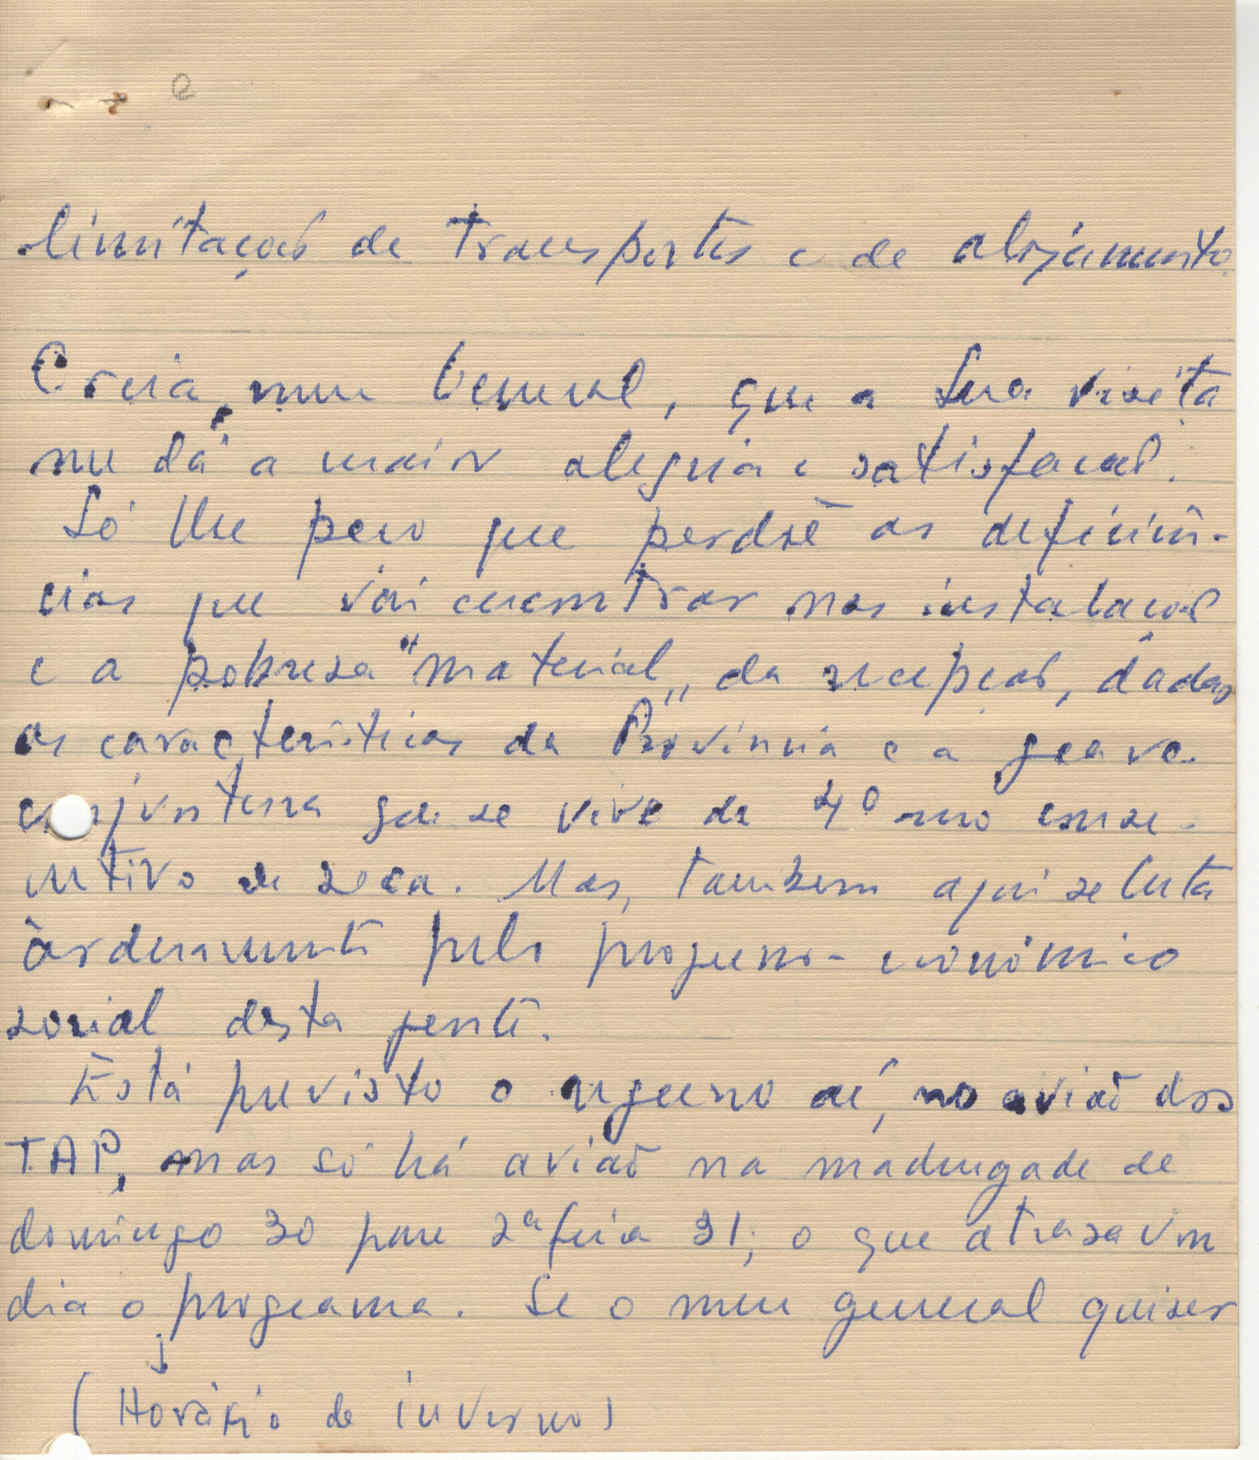 e
limitação de transportes e de alojamento
Creia, meu General, que a Sua visita
me dá a maior alegria e satisfação.
Só lhe peço que perdoe as deficiên-
cias que vai encontrar nas instalações
e a pobreza "material" da recepção, dadas
as características da Província e a grave
conjuntura que se vive de 4º ano conse-
cutivo de seca. Mas, tambem aqui se luta
àrduamente pelo progresso - económico
social desta gente.
Está previsto o regresso aí, no avião dos
TAP, mas só há avião na madrugada de
domingo 30 para 2ª feira 31, o que atrasa um
dia o programa. Se o meu general quiser
(Horário de inverno)